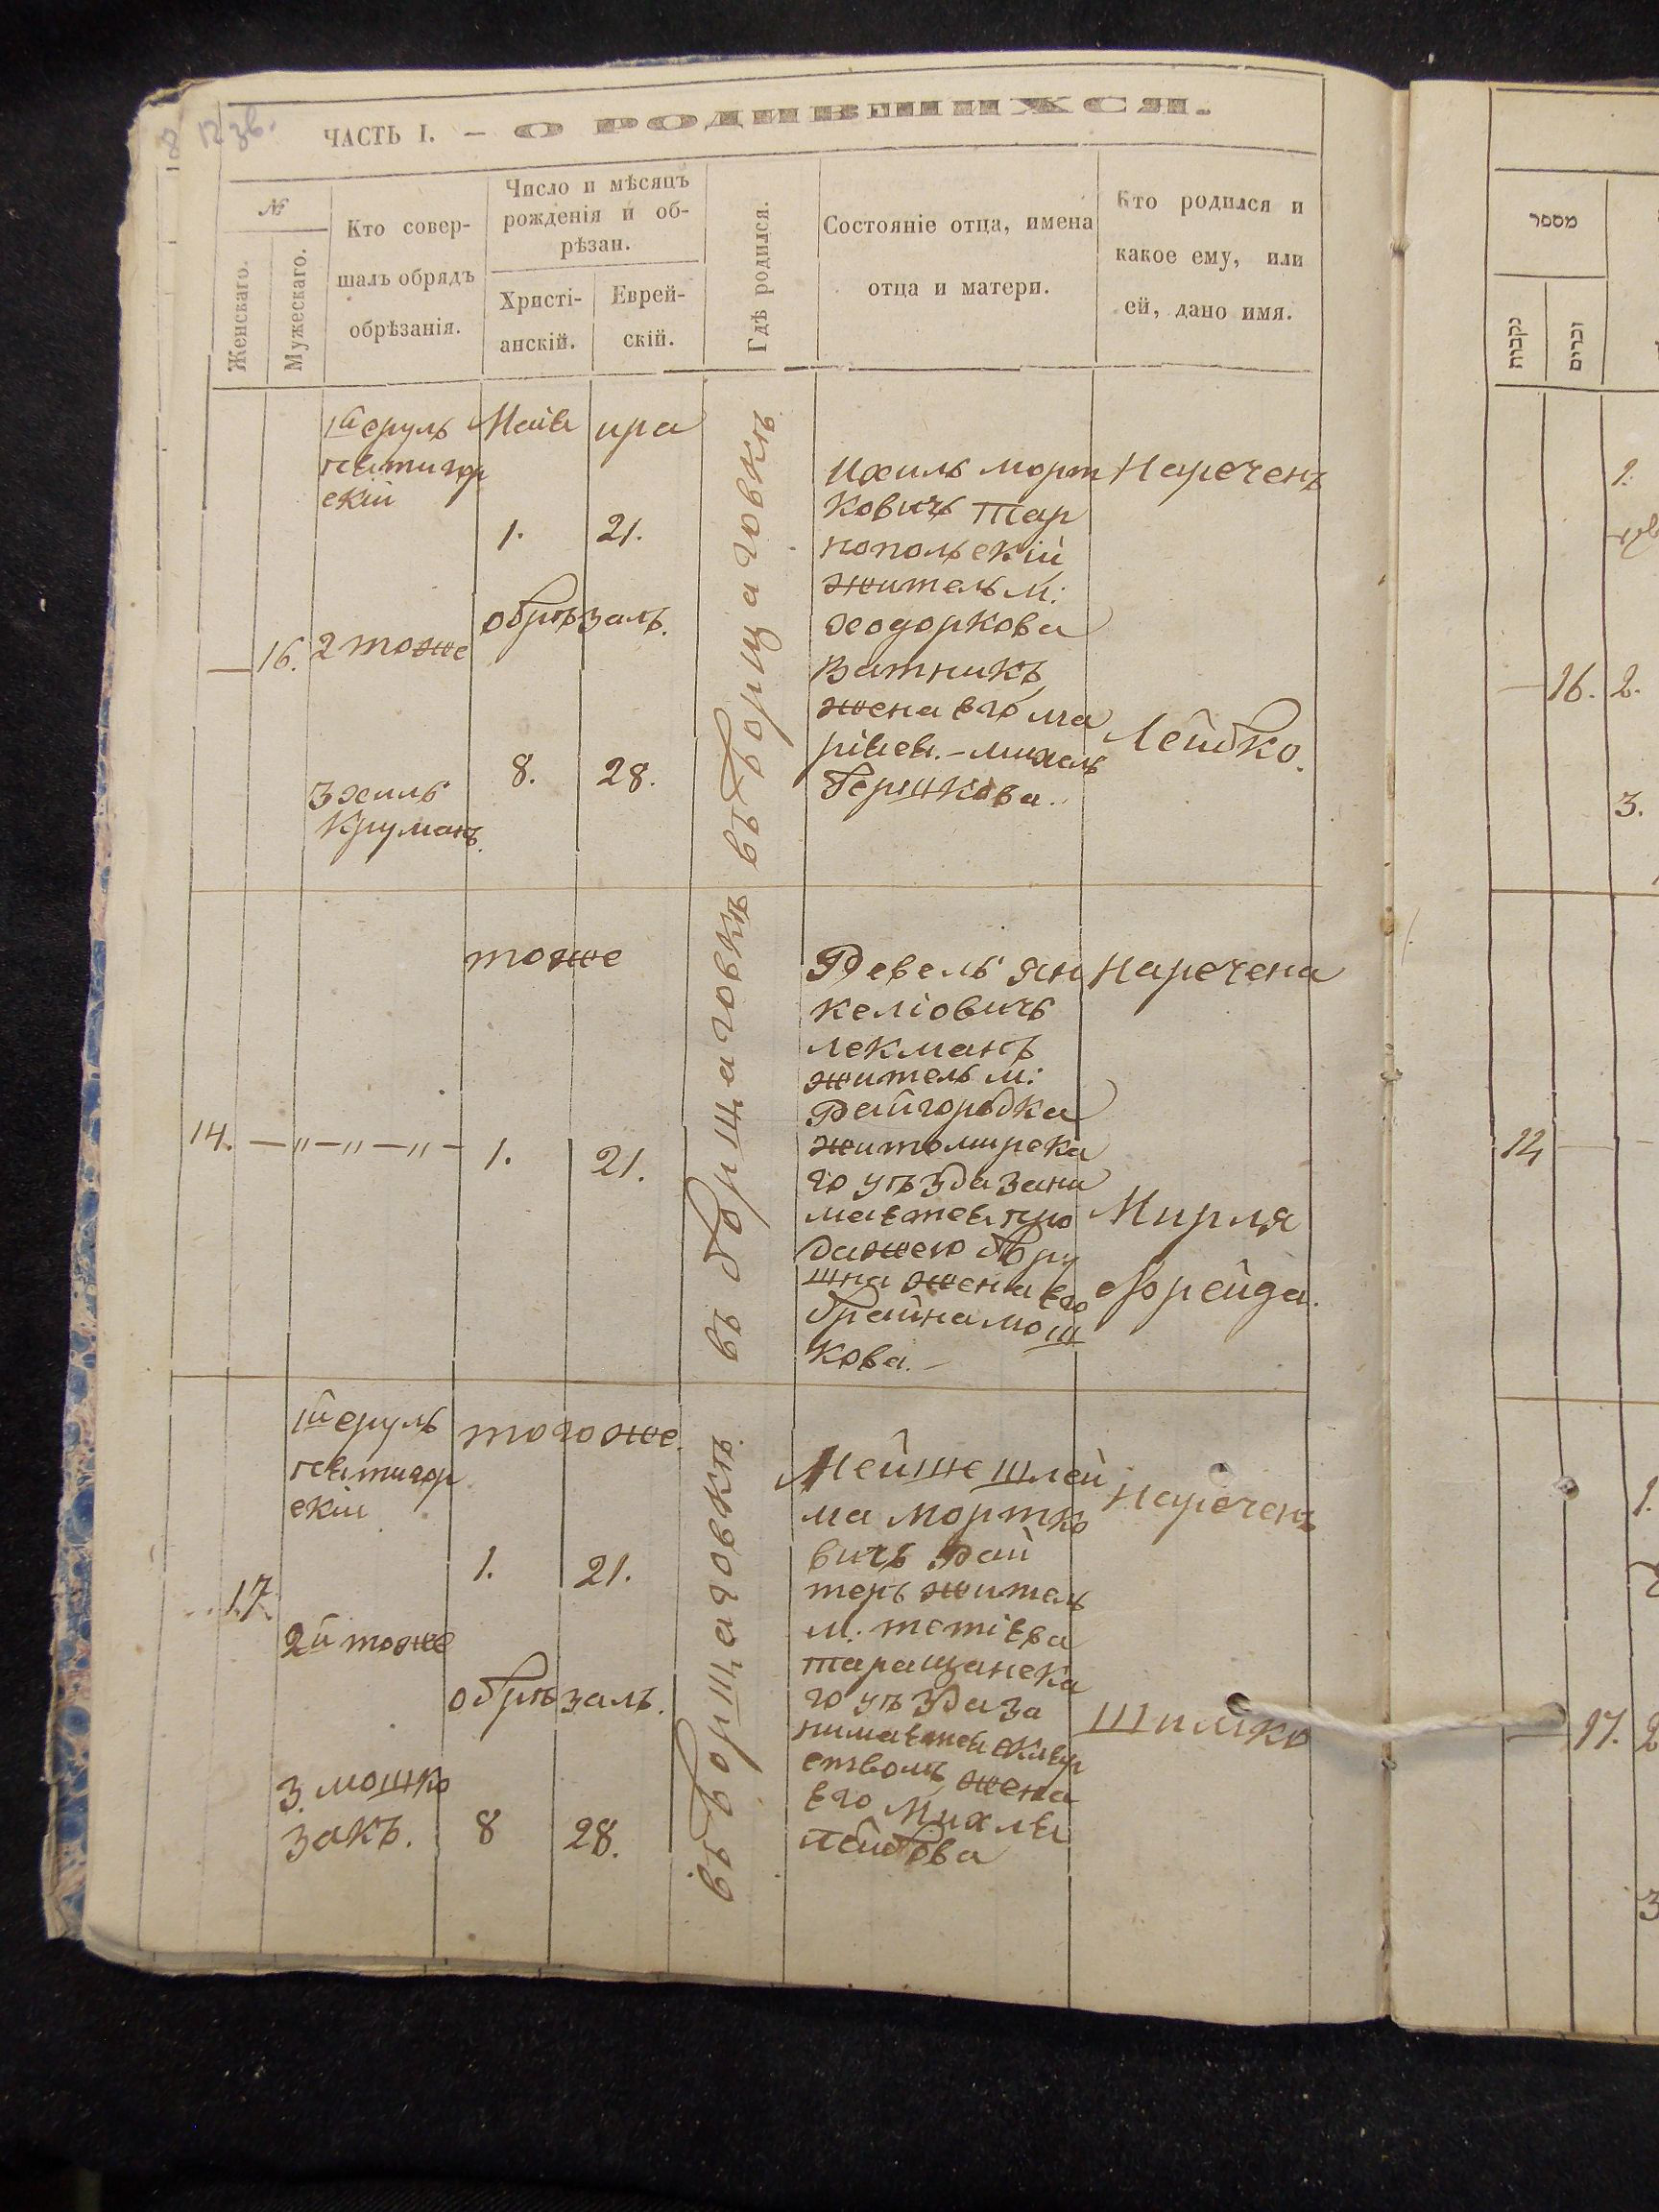 12 зв.
ЧАСТЬ I. — О РОДИВШИХСЯ.
№
Женскаго.
Мужескаго.
Кто совер-
шалъ обрядъ
обрѣзанія.
Число и мѣсяцъ
рожденія и об-
рѣзан.
Христі-
анскій.
Еврей-
скій.
Гдѣ родился.
Состояніе отца, имена
отца и матери.
Кто родился и
какое ему, или
ей, дано имя.
— 16.
1й сруль
пятигор
скій
2 тоже
3 хиль
Круманъ
Мая ира
1. 21.
обрѣзалъ.
8. 28.
въ Борщаговкѣ
Ихиль морт
ковичъ Тар
нопольскій
житель м:
ходоркова
Ватникъ
жена его ма
ріея. – михель
Бершкова.
Нареченъ
Лейбко.
14. — „ — „ — „ —
тоже
1. 21.
въ Борщаговкѣ
Ревель Ян
келіовичъ
лекманъ
житель м:
Райгородка
житомирска
го уѣзда зани
мается про
дажею
жена его
брайна мош
кова. –
Наречена
Мирля
Фрейда.
17
1й сруль
пятигор
скій
2й тоже
3. мошко
закъ.
тогоже.
1. 21.
обрѣзалъ.
8 28.
въ Борщаговкѣ
Мейше шлей
ма мортко
вичъ Рай
теръ житель
м: тетіева
таращанска
го уѣзда за
нимается
ствомъ жена
его Михля
лейбова
Нареченъ
Шимко
מספר
נקבות
זכרים
— 16.
1.
2.
3.
14 —
— 17.
1.
2
3